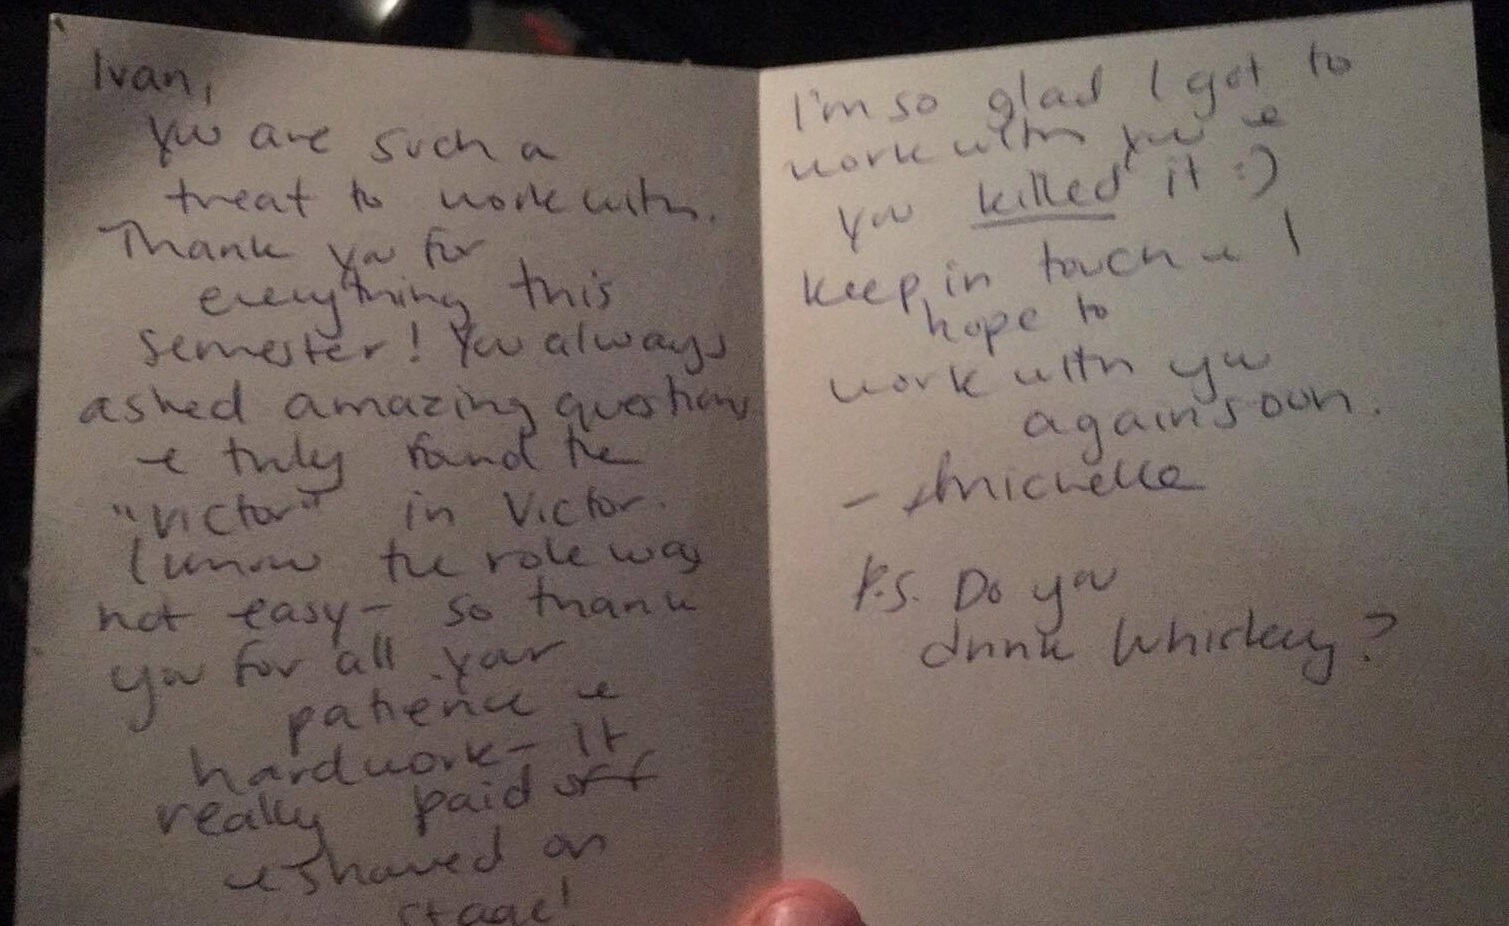 Ivan,
You are such a
treat to work with.
Thank you for
everything this
semester! You always
asked amazing questions
& truly found the
"victor" in Victor.
I know the role was
not easy- so thank
you for all your
patience &
hardwork- it
really paid off
& showed on
stage!
I'm so glad I got to
work with you &
you killed it :)
Keep in touch & I
hope to
work with you
again soon.
- Michelle
P.S. Do you
drink Whiskey?